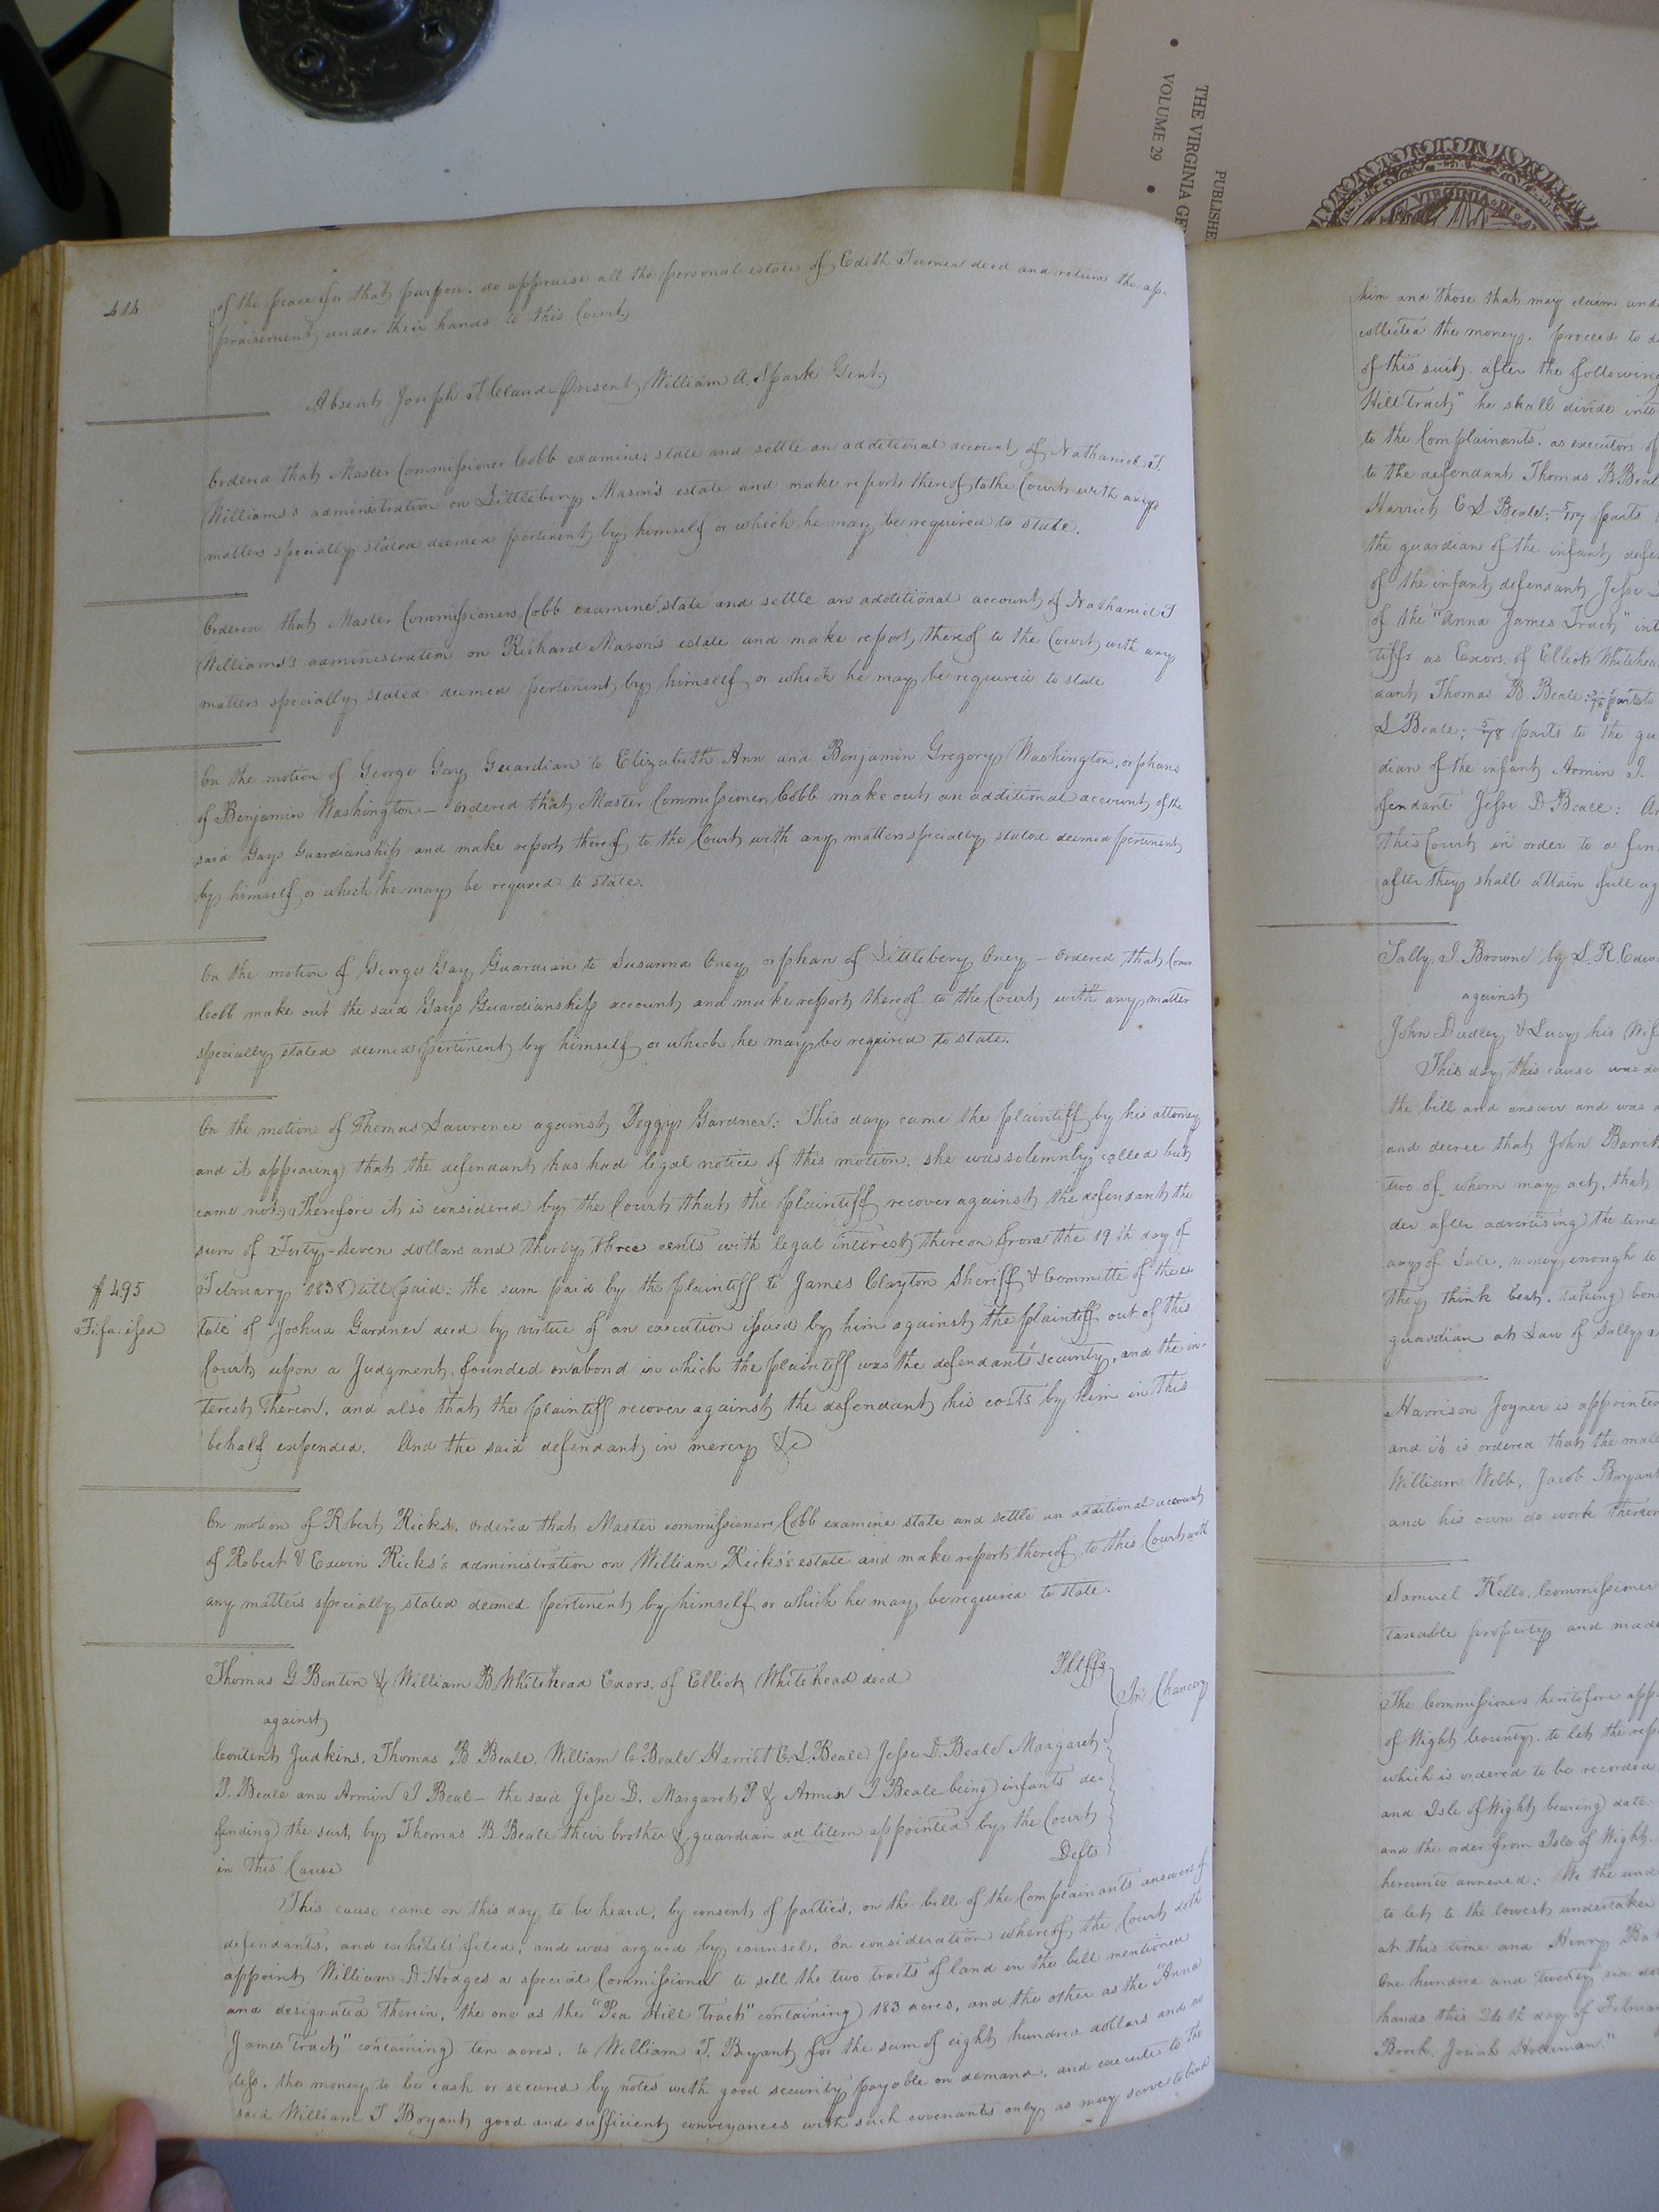 THE VIRGINIA GE
VOLUME 29
PUBLISHE
VIRGINIA
414
of the peace for that purpose, do appraise all the personal estate of Edith Turner decd and return the ap-
praisement under their hands to this Court.
Absent Joseph T Claud present William A. Spark Gent.
Ordered that Master Commissioner Cobb examine, state and settle an additional account of Nathaniel T.
Williams's administration on Littlebery Mason's estate and make report thereof to the Court with any
matters specially stated deemed pertinent by himself or which he may be required to state.
Ordered that Master Commissioner Cobb examine, state and settle an additional account of Nathaniel T
Williams's administration on Richard Mason's estate and make report thereof to the Court with any
matters specially stated deemed pertinent by himself or which he may be required to state
On the motion of George Gay Guardian to Elizabeth Ann and Benjamin Gregory Washington, orphans
of Benjamin Washington – ordered that Master Commissioner Cobb make out an additional account of the
said Gays Guardianship and make report thereof to the Court with any matters specially stated deemed pertinent
by himself or which he may be required to state.
On the motion of George Gay Guardian to Susanna Oney orphan of Littlebery Oney – ordered that Comr
Cobb make out the said Gays Guardianship account and make report thereof to the Court with any matter
specially stated deemed pertinent by himself or which he may be required to state.
On the motion of Thomas Lawrence against Peggy Gardner: This day came the plaintiff by his attorney
and it appearing that the defendant has had legal notice of this motion, she was solemnly called but
came not; Therefore it is considered by the Court that the plaintiff recover against the defendant the
sum of Forty-Seven dollars and thirty three cents with legal interest thereon from the 19th day of
# 495
February 1838 till paid: the sum paid by the plaintiff to James Clayton Sheriff & Committe of the es
Fi fa. issd
tate of Joshua Gardner decd by virtue of an execution issued by him against the plaintiff out of this
Court upon a Judgment, founded on a bond in which the plaintiff was the defendant's security, and the in-
terest thereon, and also that the plaintiff recover against the defendant his costs by him in this
behalf expended. And the said defendant in mercy &c
On motion of Robert Ricks, ordered that Master commissioner Cobb examine state and settle an additional account
of Robert & Edwin Ricks's administration on William Ricks's estate and make report thereof to this Court with
any matters specially stated deemed pertinent by himself or which he may be required to state.
Thomas G Benton & William B Whitehead Exors. of Elliot Whitehead decd Pltffs
In Chancery
against
Content Judkins, Thomas B Beale, William C Beale Harriet E. S. Beale Jesse D. Beale Margaret
P. Beale and Armin T Beal – the said Jesse D. Margaret P & Armin T Beale being infants de-
fending the suit by Thomas B Beale their brother & guardian ad litem appointed by the Court
in this Cause Defts
This cause came on this day to be heard, by consent of parties, on the bill of the Complainants answers of
defendants, and exhibits filed, and was argued by counsel. On consideration whereof the Court doth
appoint William D. Hodges a special Commissioner to sell the two tracts of land in the bill mentioned
and designated therein, the one as the "Pea Hill Tract" containing 183 acres, and the other as the "Anna
James Tract" containing ten acres, to William T. Bryant for the sum of eight hundred dollars and no
less, the money to be cash or secured by notes with good security payable on demand, and execute to the
said William T Bryant good and sufficient conveyances with such covenants only as may serve to bind
him and those that may claim und
collected the money, proceed to
of this suit after the following
Hill Tract" he shall divide into
to the Complainants, as executors of
to the defendant Thomas B. Beal
Harriet E S Beale; parts
the guardian of the infant defe
of the infant defendant Jesse
of the "Anna James Tract" int
tiffs as Exors. of Elliot Whitehea
dant Thomas B Beale; parts to
S Beale; 5/78 parts to the gu
dian of the infant Armin T.
fendant Jesse D Beale: An
this Court in order to a fin
after they shall attain full ag
Sally J. Browne by S. R. Edw
against
John Dudley & Lucy his Wif
This day this cause was
the bill and answer and was
and decree that John Barrett
two of whom may act, that
der after advertising the time
day of Sale, money enough to
they think best, taking bon
guardian at Law of Sally
Harrison Joyner is appointed
and it is ordered that the male
William Webb, Jacob Bryant
and his own do work thereon
Samuel Kello, Commissioner
taxable property and made
The Commissioners heretofore app
of Wight County, to let the rep
which is ordered to be recorded
and Isle of Wight bearing date
and the order from Isle of Wight
hereunto annexed: We the und
to let to the lowest undertaker
at this time and Henry Ba
One hundred and twenty six do
hands this 26th day of Februa
Josiah Holleman."